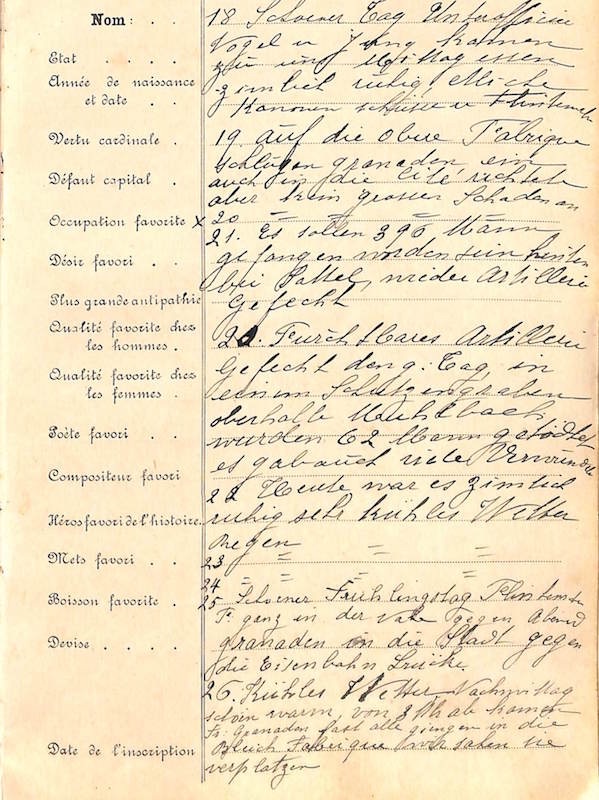 Nom: . .
Etat . . . .
Année de naissance
et date . .
Vertu cardinale .
Défaut capital .
Occupation favorite
Désir favori . .
Plus grande antipathie
Qualité favorite chez
les hommes .
Qualité favorite chez
les femmes .
Poète favori . .
Compositeur favori
Héros favori de l'histoire.
Mets favori . .
Boisson favorite .
Devise . . . .
Date de l'inscription
18 Schoener Tag Unterofficier
Vogel u Jung kamen
zu uns Mittag essen
zimlich ruhig,
Kanonen schüsse u
19. auf die obere Fabrique
schlugen granaden ein
auch in die Cité richtete
aber kein grosser Schaden an
x 20 = = =
21. Es sollen 396 Mann
gefangen worden sein hinten
bei Sattel, wieder Artillerie
Gefecht
20. Furchtbares Artillerie
Gefecht den g. Tag, in
einem Schutzengraben
oberhalb Muhlbach
wurden 62 Mann getödtet
es gab auch viele Verwundete
22 Heute war es zimlich
ruhig sehr kühles Wetter
Regen
23 = = =
24 = = =
25 Schoener Frühlingstag
F. ganz in der nahe gegen Abend
granaden in die Stadt gegen
die Eisenbahn Brücke
26. Kühles Wetter Nachmittag
schön warm, von 3 Uh ab kamen
Fr. Granaden fast alle giengen in die
Bleich Fabrique wir sahen sie
verplatzen